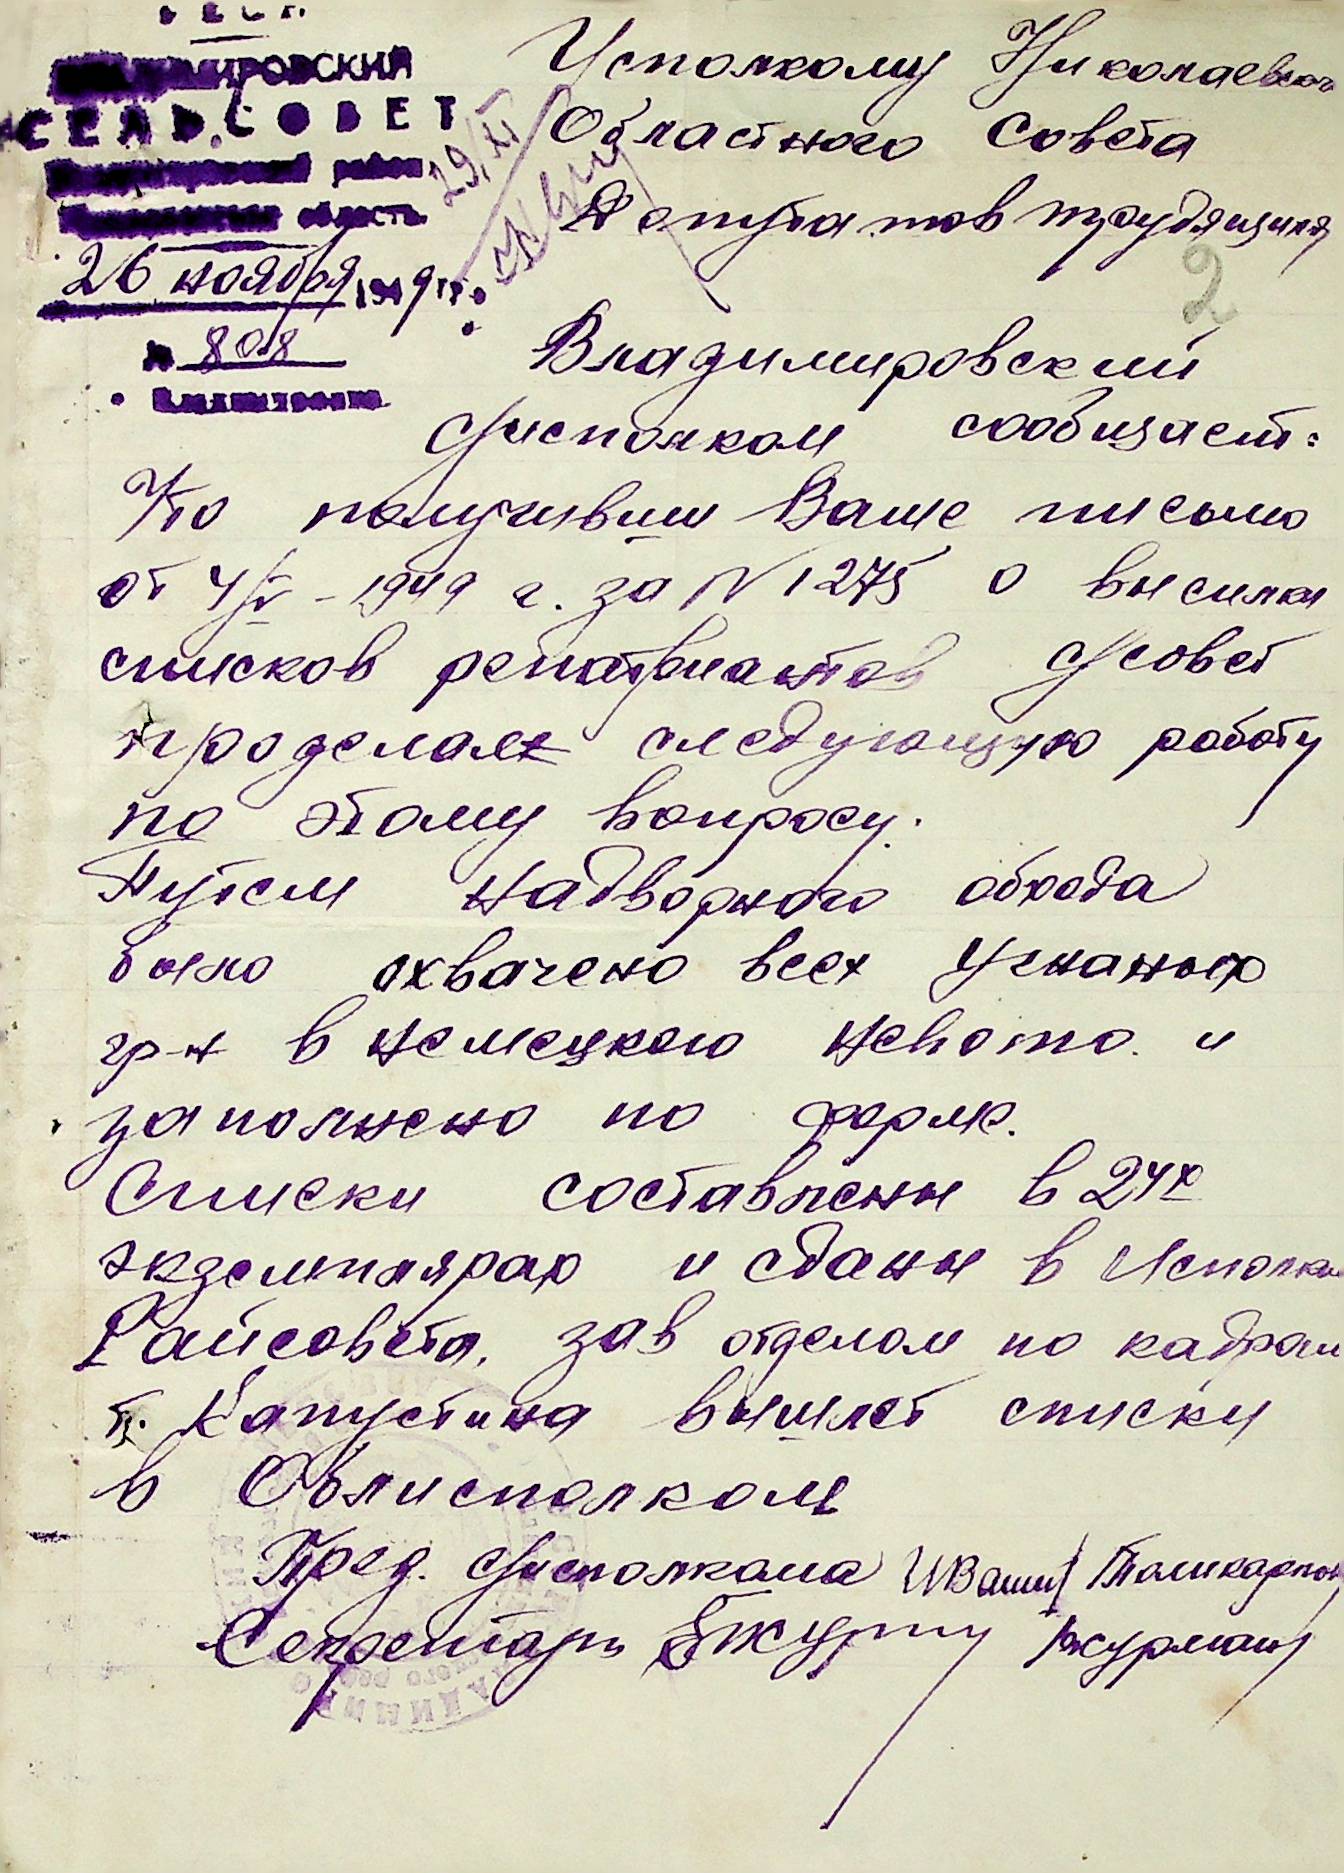 СЕЛЬСОВЕТ
район
область
26 ноября 1949 г.
№ 808
29/XI
Исполкому Николаевског
Областного Совета
Депутатов трудящихся
2
Владимировский
с/исполком сообщает:
Что получивши Ваше письмо
от 4/V - 1949 г. за N 1275 о высилки
списков репатриантов с/совет
проделал следующую работу
по этому вопросу.
Путем надворного обхода
было охвачено всех угнаных
гр-н в немецкою неволю и
заполнено по форме.
Списки составлены в 2ух
экземплярах и сданы в Исполком
Райсовета, зав отделом по кадрам
т. Капустина вышлет списки
в Облисполком
Пред. с/исполкома
Секретарь